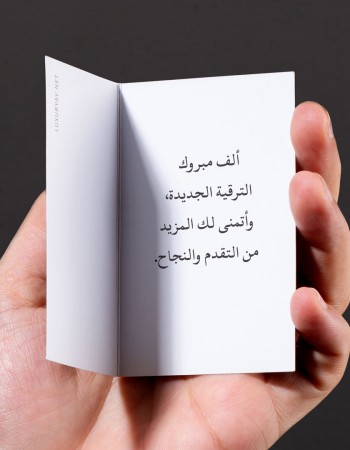 ألف مبروك
الترقية الجديدة،
وأتمنى لك المزيد
من التقدم والنجاح.
LUXURYBY.NET